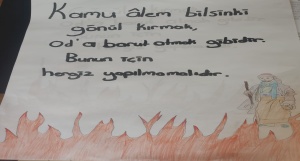 Kamu âlem bilsinki
gönül kırmak,
Od'a barut atmak gibidir.
Bunun için
hergiz yapılmamalıdır.